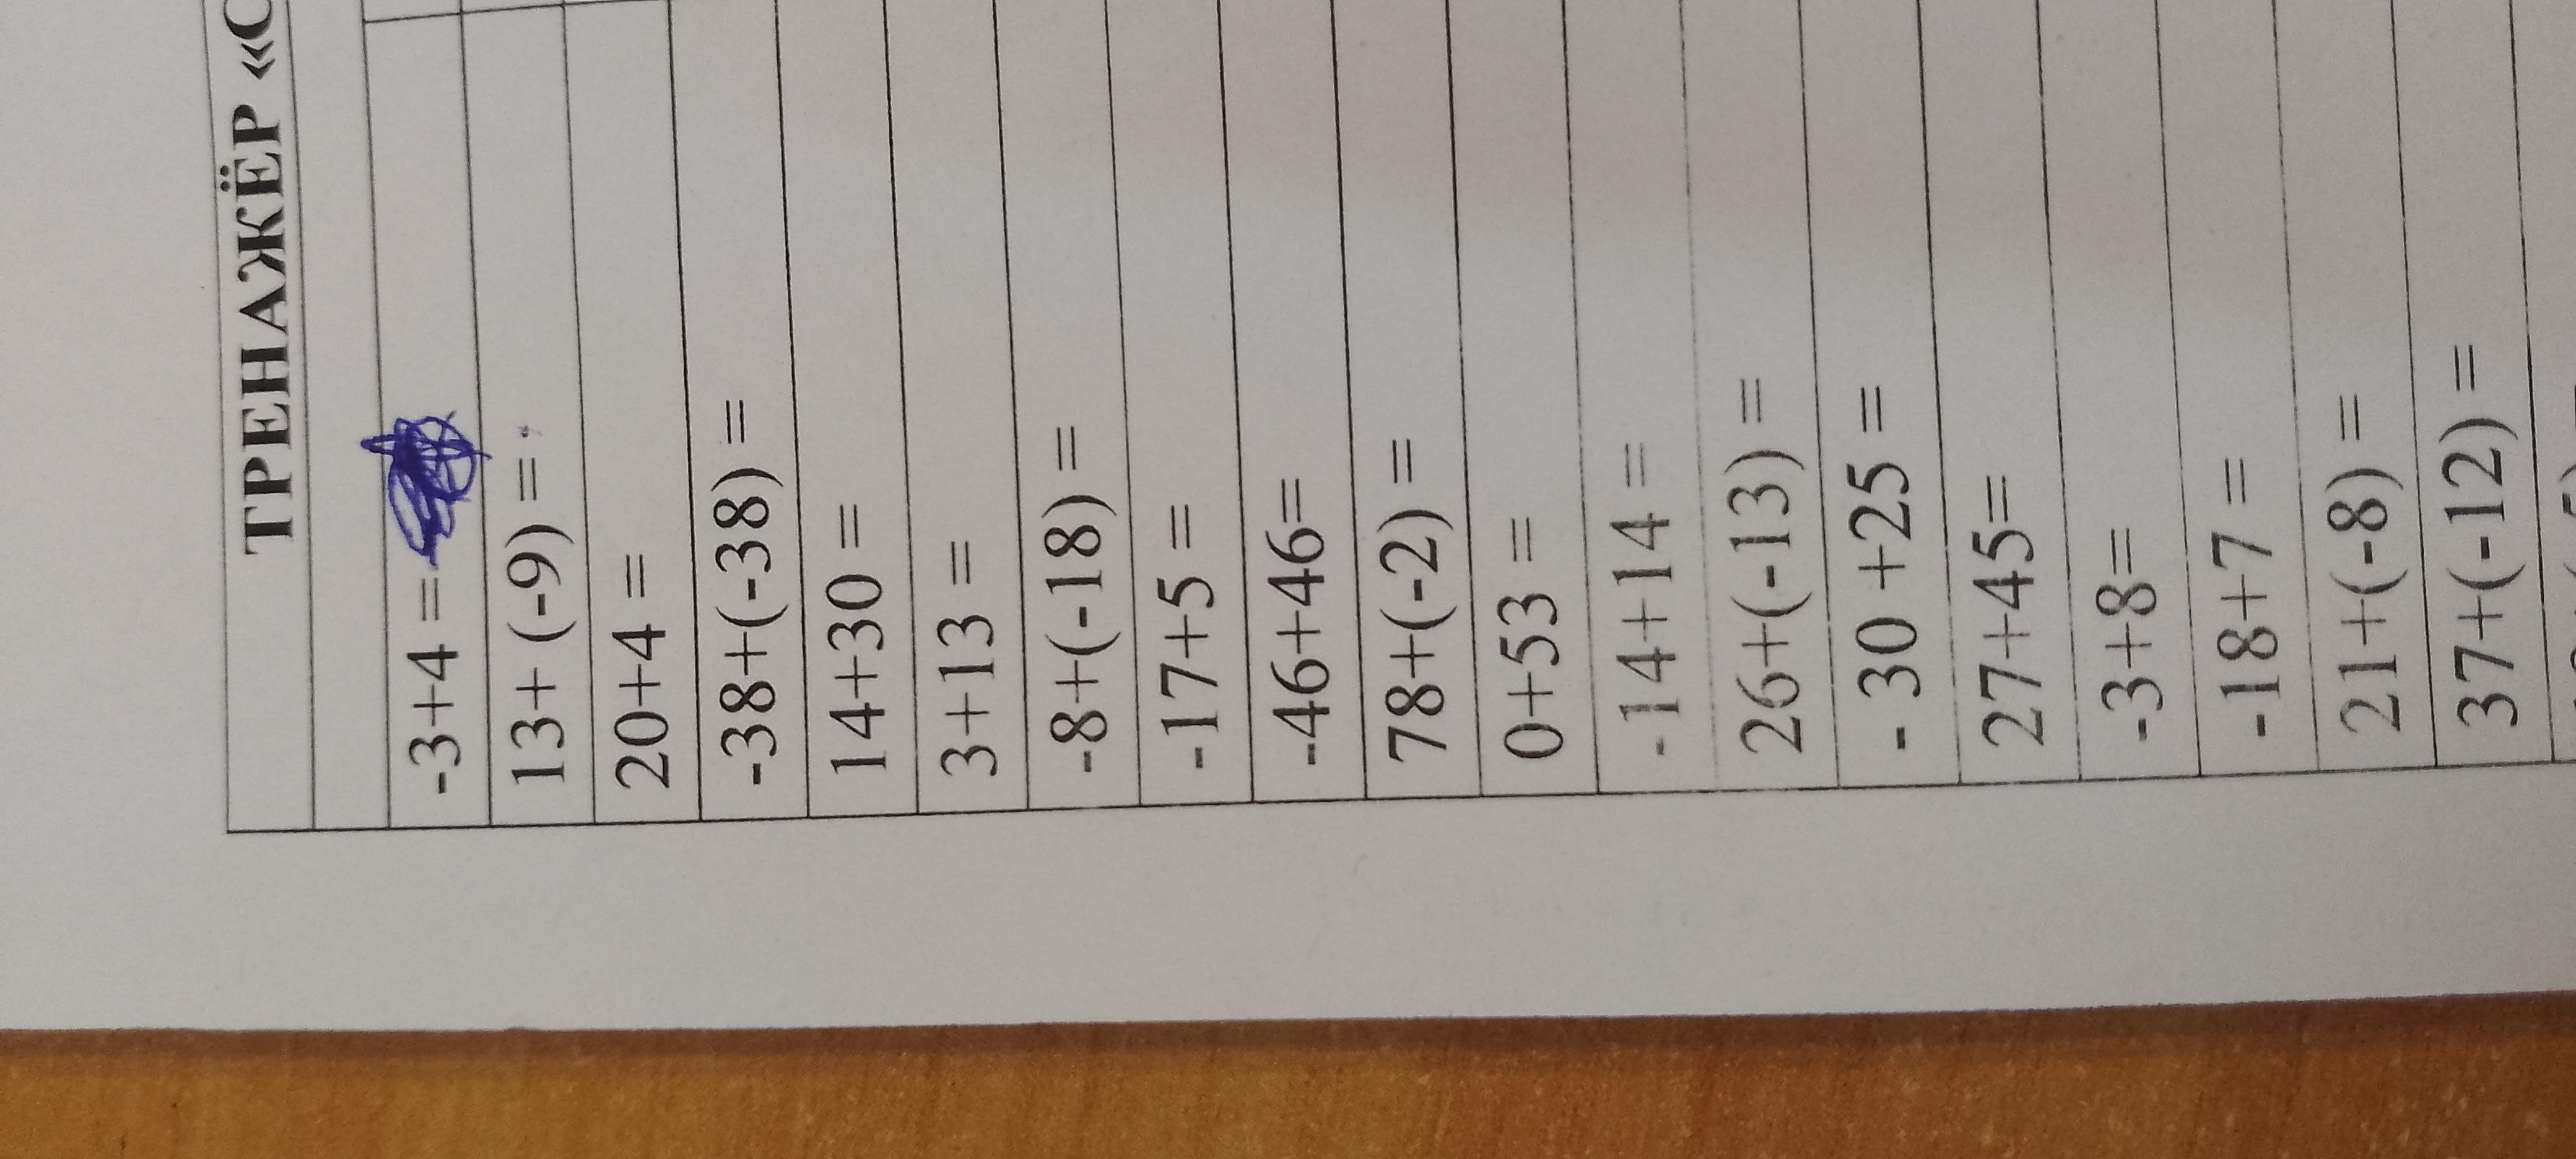 ТРЕНАЖЁР «С
-3+4 =
13+ (-9) =
20+4 =
-38+(-38) =
14+30 =
3+13 =
-8+(-18) =
-17+5 =
-46+46=
78+(-2) =
0+53 =
-14+14 =
26+(-13) =
- 30 +25 =
27+45=
-3+8=
-18+7 =
21+(-8) =
37+(-12) =